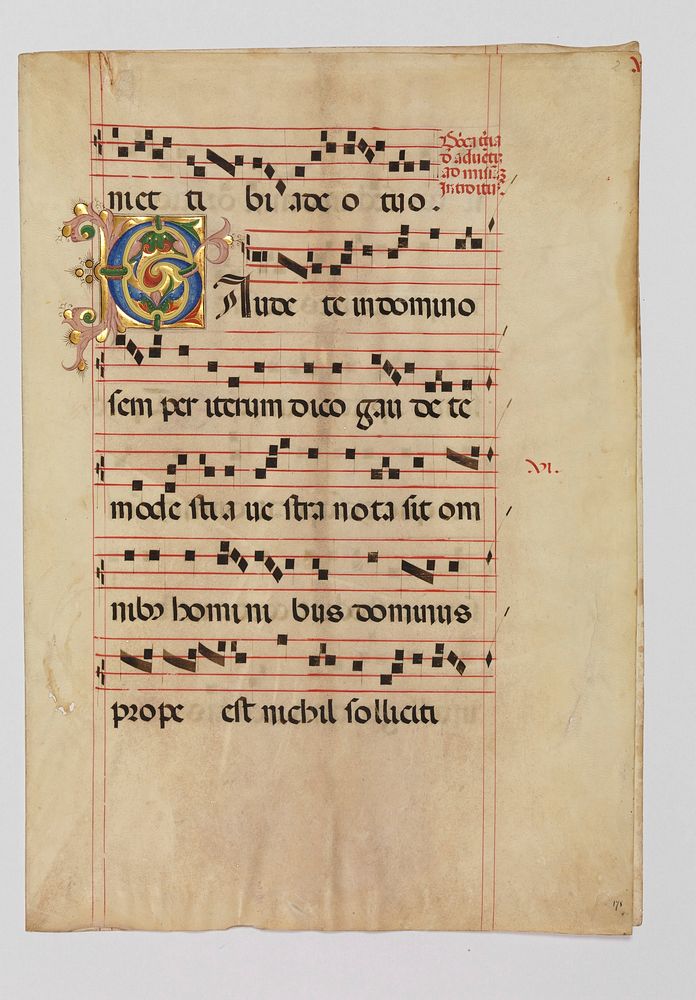 niet ti bi a deo tuo.
Dñica t̃cia
d̃ aduẽtu
ad missã
Introitus.
GAude te in domino
sem per iterum dico gau de te
mode sti a ue stra nota sit om
VI.
nibꝫ homi ni bus dominus
prope est nichil solliciti